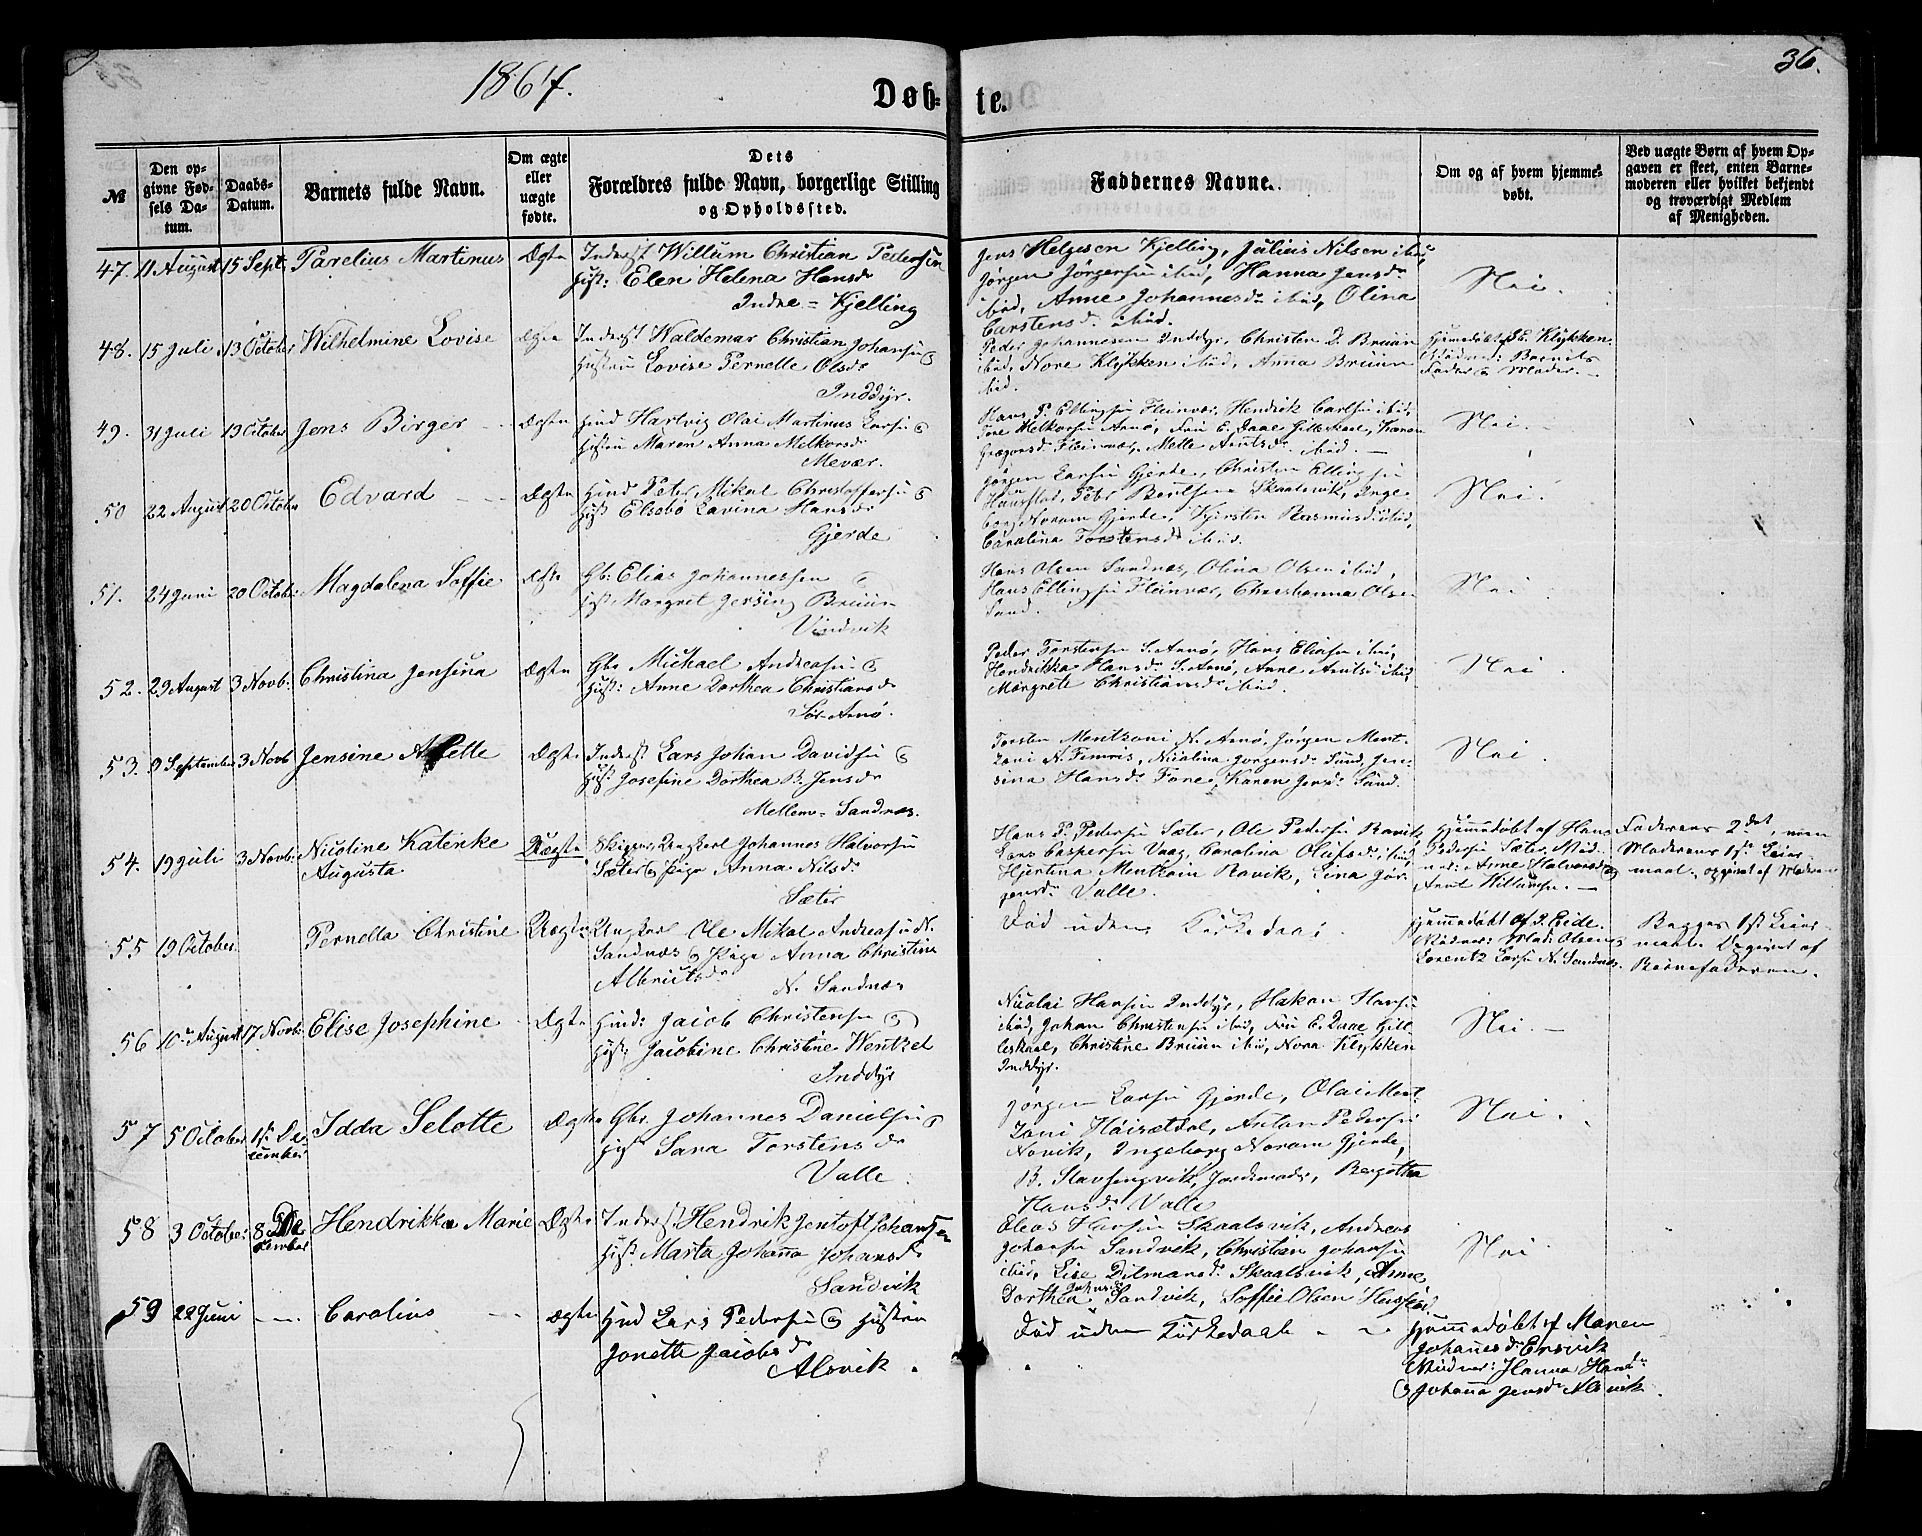 1867.
Døb-te.
36.
№
Den opgivne Fødsels Datum.
Daabs-Datum.
Barnets fulde Navn.
Om ægte eller uægte fødte.
Dets Forældres fulde Navn, borgerlige Stilling og Opholdssted.
Faddernes Navne.
Om og af hvem hjemmedøbt.
Ved uægte Børn af hvem Opgaven er skeet, enten Barnemoderen eller hvilket bekjendt og troværdigt Medlem af Menigheden.
47. 11 August 15 Sept. Parelius Martinus Ægte
Inderst Willum Christian Pedersen
Hust: Elen Helena Hansdr
Indre = Kjelling
Jens Helgesen Kjelling, Julius Nilsen ibid,
Jørgen Jørgensen ibid, Hanna Jensdr
ibid, Anne Johannesdr ibid, Olina
Carstensd. ibid.
Nei.
48. 15 Juli 13 October Wilhelmine Lovise Ægte
Inderst Waldemar Christian Johansen &
Hustru Lovise Pernelle Olsdr
Inddyr.
Peder Johannesen Inddyr, Christen D. Bruun
ibid, Nore Klykken ibid, Anna Bruun
ibid.
Hjemedøbt af E. Klykken.
Vidner: Barnets
Fader & Moder.
49. 31 Juli 19 October Jens Birger Ægte
Huusd Hartvig Olai Martinus Larsen &
Hustru Maren Anna Melkorsdr
Mevær.
Hans P. Ellingsen Fleinvær, Hendrik Carlsen ibid,
Tore Melkorsen Arnø, Fru E. Daae Gilleskaal, Karen
Grægersd. Fleinvær, Melle Arntsdr ibid.
Nei.
50 22 August 20 October Edvard Ægte
Huusd Peter Mikal Christoffersen &
Hust Elsebø Lavina Hansdr
Gjerde
Jørgen Larsen Gjerde, Christen Ellingsen
Hausstad, Peter Bentsen Skaalsvik, Inge-
borg Noram Gjerde, Kjersten Rasmusd. ibid,
Caralina Torstensdr ibid.
Nei.
51. 24 Juni 20 October Magdalena Soffie Ægte
Gb: Elias Johannessen &
Hust Margret Jersing Bruun
Vindvik
Hans Olsen Sandnæs, Olina Olsen ibid,
Hans Ellingsen Fleinvær, Christianna Olsen
Sund.
Nei
52. 29 August 3 Novb: Christina Jensina Ægte
Gbr Michael Andreasen &
Hust: Anne Dorthea Christiansdr
Sør-Arnø.
Peder Torstensen S. Arnø, Hans Eliasen ibid,
Hendrikka Hansd. S. Arnø, Anne Arntsd ibid,
Margrete Christiansdr ibid.
Nei.
53. 9 September 3 Novb Jensine Ægte
Inderst Lars Johan Davidsen &
Hust Josefine Dorthea B. Jensdr
Mellem-Sandnæs.
Torsten Mentzoni N. Arnø, Jørgen Ment-
zoni N. Femris, Nicolina Jørgensdr Sund, Jen-
sina Hansdr Fore, Karen Jensdr Sund.
Nei
54. 19 Juli 3 Novb. Nicoline Katinke
Augusta
Uægte
Skipper, Ungkarl Johannes Halvorsen
Sæter & Pige Anna Nilsdr
Sæter
Hans P. Pedersen Sæter, Ole Pedersen Ravik
Lars Caspersen Vaag, Carolina Olufsdr ibid,
Hjertina Mentzoni Ravik, Lina Jør-
gensdr Valle.
Hjemmdøbt af Hans
Pedersen Sæter. Vid-
ner: Anne Halvorsd. &
Arnt Willumsen.
Faderens 2det, men
Moderens 1ste Leier-
maal, opgivet af Moderen
55 19 October. Pernella Christine Uægte
Ungkarl Ole Mikal Andreasen N.
Sandnæs & Pige Anna Christine
Albrichtsdr
N. Sandnæs
Død uden Kirkedaab
Hjemmedøbt af J. Eide.
Vidner: Olsen &
Lorentz Larsen N. Sandnæs.
Begges 1ste Leier-
maal. Opgivet af
Barnefaderen.
56 10 August 17 Novb: Elise Josephine Ægte
Huusd: Jacob Christensen &
Hust: Jacobine Christine Wentzel
Inddyr
Nicolai Hansen Inddyr, Hakon Hansen
ibid, Johan Christensen ibid, Fru E. Daae Gil-
leskaal, Christine Bruun ibid, Nora Klykken
Inddyr.
Nei.
57 5 October 1st De-
cember
Idda Selotte Ægte
Gbr. Johannes Danielsen &
Hust Sara Torstensdr
Valle
Jørgen Larsen Gjerde, Olai Ment-
zoni Høisætdal, Anton Pedersen
Novik, Ingeborg Noram Gjerde,
B. Stavsengvik, Jordemoder, Bergette
Hansdr Valle
Nei.
58 3 October 8 De-
cember
Hendrikka Marie Ægte
Inderst Hendrik Jentoft Johansen
Hust. Marta Johanna Johansdr
Sandvik
Elias Hansen Skaalsvik, Andreas
Johansen Sandvik, Christian Johansen
ibid, Lise Dilmansdr Skaalsvik, Anne
Dorthea Johansdr Sandvik, Soffie Olsen
Nei
59 22 Juni Carolius Ægte
Huusd Lars Pedersen & Hustru
Jonette Jacobsdr
Alsvik.
Død uden Kirkedaab
Hjemmedøbt af Maren
Johannesdr Ersvik
Vidner: Hanna Hansdr
& Johanna Jensdr Alsvik.